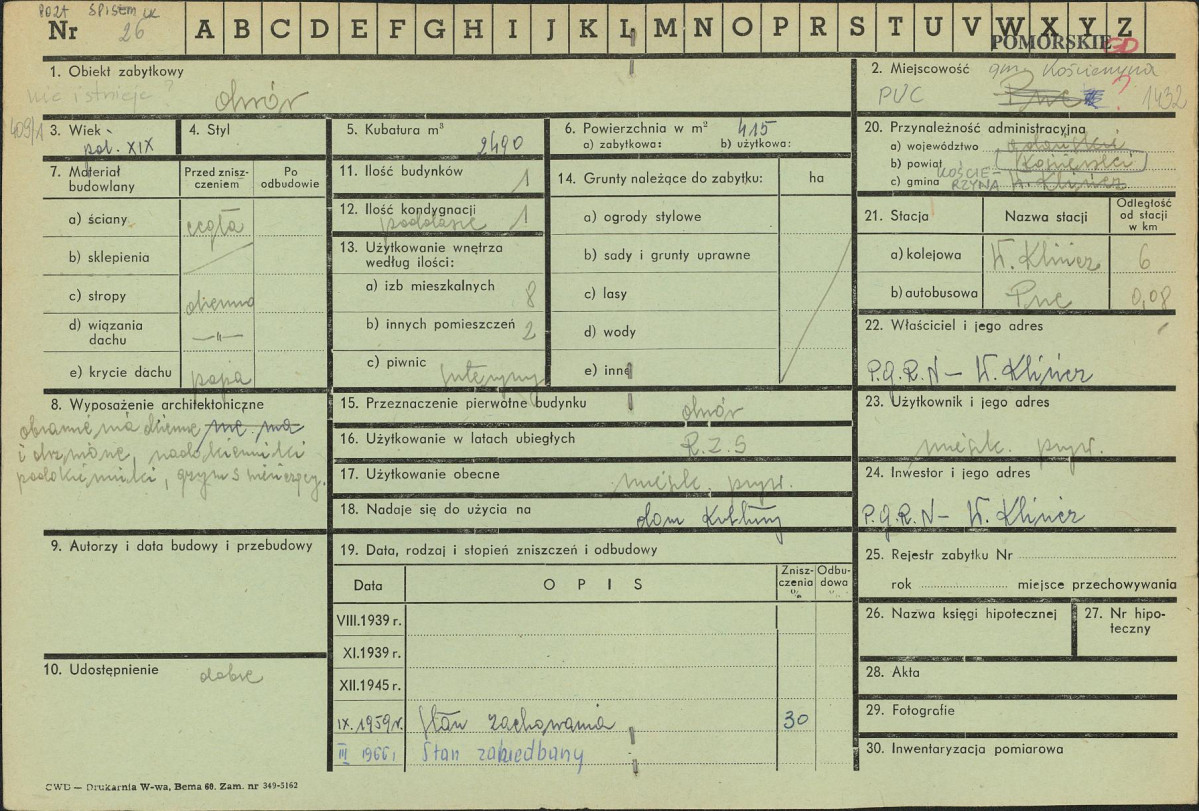 Nr 26
A B C D E F G H I J K L M N O P R S T U V W X Y Z
POMORSKIE
1. Obiekt zabytkowy
nie istnieje?
dwór
2. Miejscowość gm. Kościerzyna
PUC Puc ? 1432
409/1
3. Wiek
poł. XIX
4. Styl
5. Kubatura m³
2490
6. Powierzchnia w m² 415
a) zabytkowa: b) użytkowa:
20. Przynależność administracyjna
a) województwo gdański
b) powiat Kościerski
c) gmina KOŚCIERZYNA W. Klińcz
7. Materiał budowlany
Przed zniszczeniem
Po odbudowie
a) ściany cegła
b) sklepienia
c) stropy drewno
d) wiązania dachu —"—
e) krycie dachu papa
11. Ilość budynków 1
12. Ilość kondygnacji 1
poddasze
13. Użytkowanie wnętrza według ilości:
a) izb mieszkalnych 8
b) innych pomieszczeń 2
c) piwnic
14. Grunty należące do zabytku: ha
a) ogrody stylowe
b) sady i grunty uprawne
c) lasy
d) wody
e) inne
21. Stacja
Nazwa stacji
Odległość od stacji w km
a) kolejowa W. Klińcz 6
b) autobusowa Puc 0,08
22. Właściciel i jego adres
P.G.R.N – W. Klińcz
8. Wyposażenie architektoniczne
okienne nie ma
i drzwiowe, nadokienniki
podokienniki, gzyms wieńczący.
15. Przeznaczenie pierwotne budynku dwór
16. Użytkowanie w latach ubiegłych R.Z.S
17. Użytkowanie obecne mieszk. pryw.
18. Nadaje się do użycia na dom Kultury
23. Użytkownik i jego adres
mieszk. pryw.
24. Inwestor i jego adres
P.G.R.N – W. Klińcz
9. Autorzy i data budowy i przebudowy
19. Data, rodzaj i stopień zniszczeń i odbudowy
Data
OPIS
Zniszczenia %
Odbudowa %
VIII.1939 r.
XI.1939 r.
XII.1945 r.
IX.1959r. Stan zachowania 30
III 1966r Stan zaniedbany
25. Rejestr zabytku Nr
rok miejsce przechowywania
26. Nazwa księgi hipotecznej
27. Nr hipoteczny
10. Udostępnienie dobre
28. Akta
29. Fotografie
30. Inwentaryzacja pomiarowa
CWD — Drukarnia W-wa, Bema 60. Zam. nr 349-5162